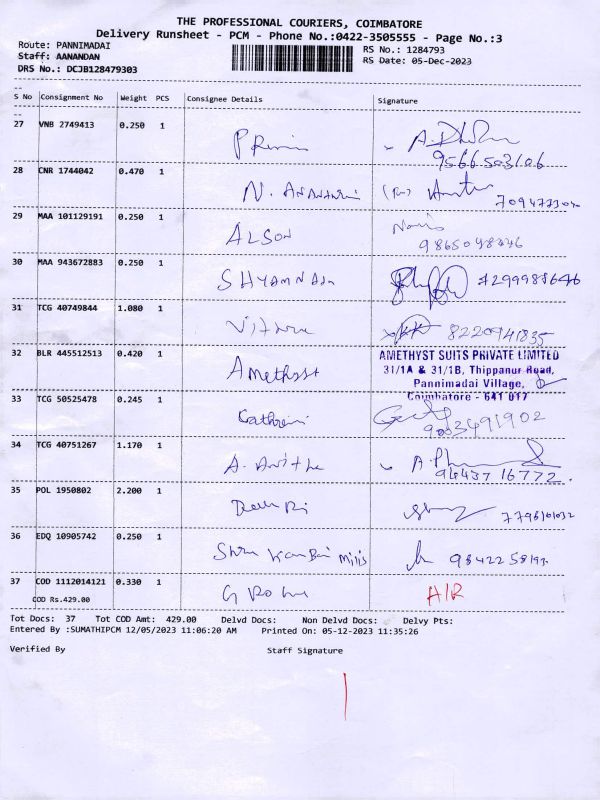 THE PROFESSIONAL COURIERS, COIMBATORE
Delivery Runsheet - PCM - Phone No.:0422-3505555 - Page No.:3
Route: PANNIMADAI RS No.: 1284793
Staff: AANANDAN RS Date: 05-Dec-2023
DRS No.: DCJB128479303
S No Consignment No Weight PCS Consignee Details Signature
27 VNB 2749413 0.250 1
9566503106
28 CNR 1744042 0.470 1
N.
29 MAA 101129191 0.250 1
ALSON
30 MAA 943672883 0.250 1
SHYAMNATH 7299985646
31 TCG 40749844 1.080 1
8220941835
32 BLR 445512513 0.420 1
Amethyst
AMETHYST SUITS PRIVATE LIMITED
31/1A & 31/1B, Thippanur Road,
Pannimadai Village,
Coimbatore - 641 017
33 TCG 50525478 0.245 1
9003491902
34 TCG 40751267 1.170 1
A. Anitha
9443716772
35 POL 1950802 2.200 1
36 EDQ 10905742 0.250 1
Mills
37 COD 1112014121 0.330 1
COD Rs.429.00
AIR
Tot Docs: 37 Tot COD Amt: 429.00 Delvd Docs: Non Delvd Docs: Delvy Pts:
Entered By :SUMATHIPCM 12/05/2023 11:06:20 AM Printed On: 05-12-2023 11:35:26
Verified By Staff Signature